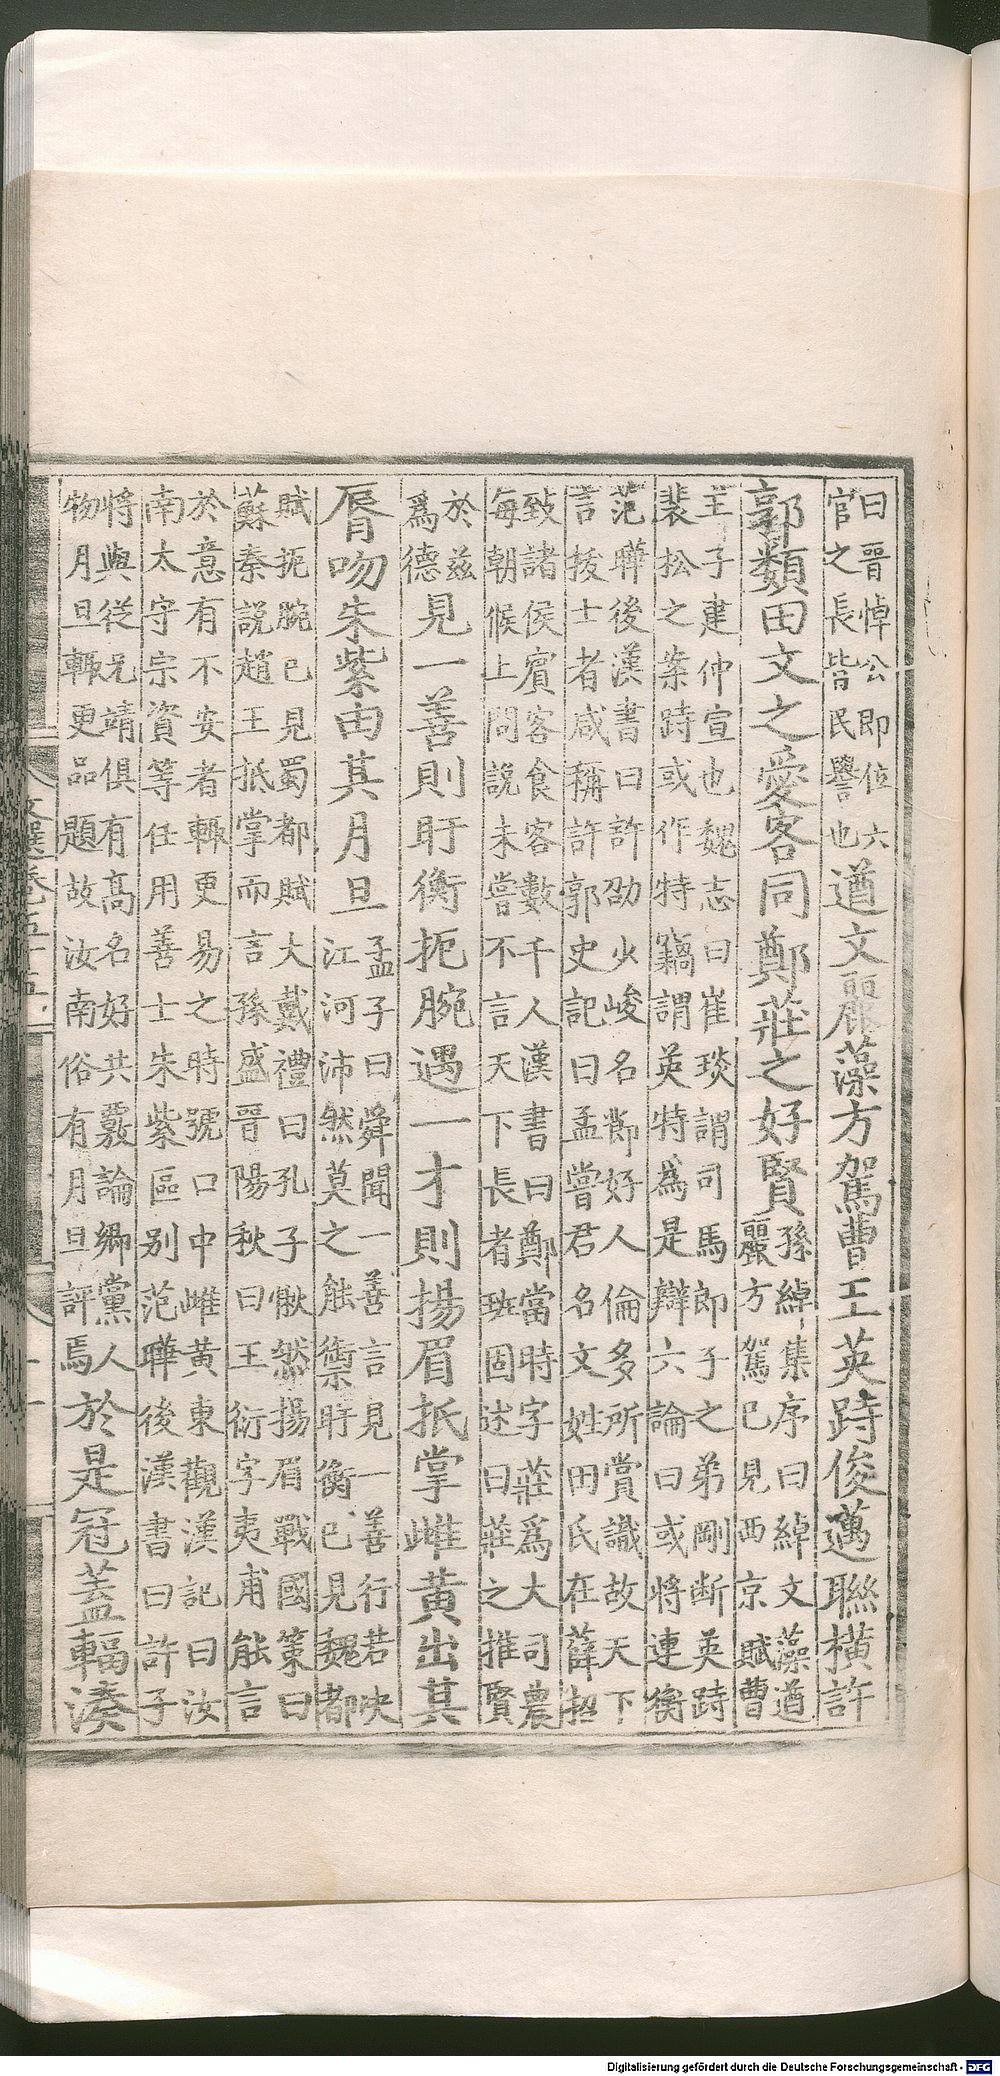 曰晋悼公即位六官之長皆民譽也遒文麗藻方駕曹王英跱俊邁聯橫許
郭類田文之愛客同鄭莊之好賢孫綽集序曰綽文藻遒麗方駕已見西京賦曹
王子建仲宣也魏志曰崔琰謂司馬郎子之弟剛断英跱裴松之案跱或作特竊謂英特為是辯六論曰或將連衡
范曄後漢書曰許劭少峻名節好人倫多所賞識故天下言拔士者咸稱許郭史記曰孟嘗君名文姓田氏在薛招
致諸侯賓客食客數千人漢書曰鄭當時字莊爲大司農每朝候上問說未嘗不言天下長者班固述曰莊之推賢
於兹爲德見一善則盱衡扼腕遇一才則揚眉抵掌雌黃出其
脣吻朱紫由其月旦孟子曰舜聞一善言見一善行若决江河沛然莫之能禦盱衡已見魏都
賦扼腕已見蜀都賦大戴禮曰孔子愀然揚眉戰國策曰蘇秦說趙王抵掌而言孫盛晋陽秋曰王衍字夷甫能言
於意有不安者輙更易之時號口中雌黃東觀漢記曰汝南太守宗資等任用善士朱紫區别范曄後漢書曰許子
將與從兄靖俱有高名好共覈論鄉黨人物月旦輙更品題故汝南俗有月旦評焉於是冠蓋輻湊
文選卷五十五
Digitalisierung gefördert durch die Deutsche Forschungsgemeinschaft - DFG